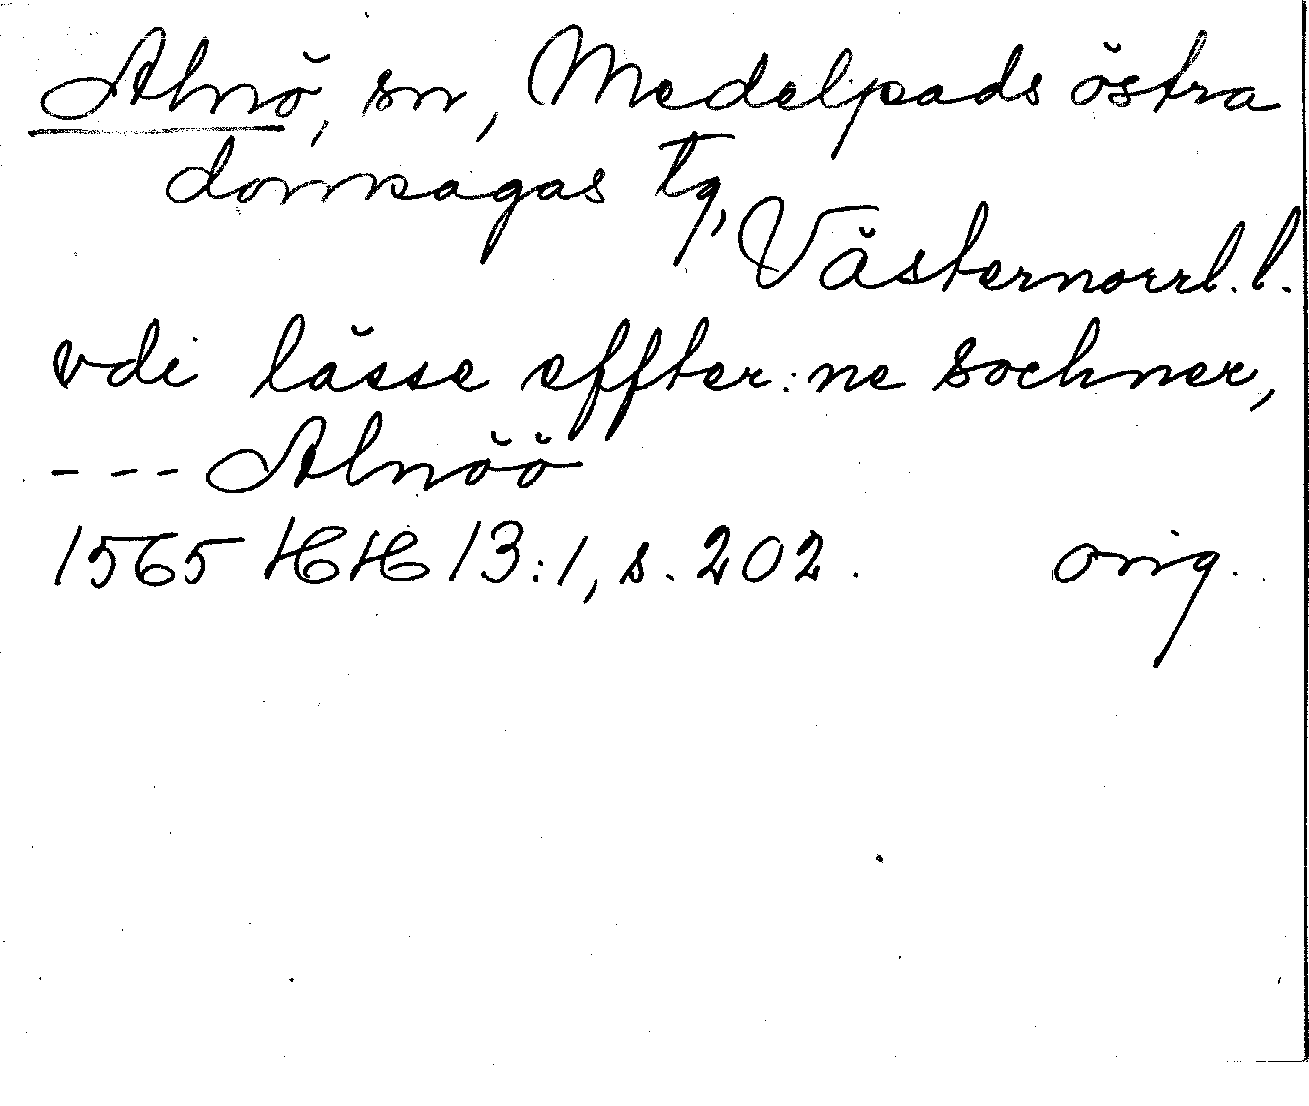 Alnö, sn, Medelpads östra
domsagas tg,
Västernorrl. l.
vdi lässe effter:ne sochner,
--- Alnöö
1565 HH 13:1, s. 202. orig.